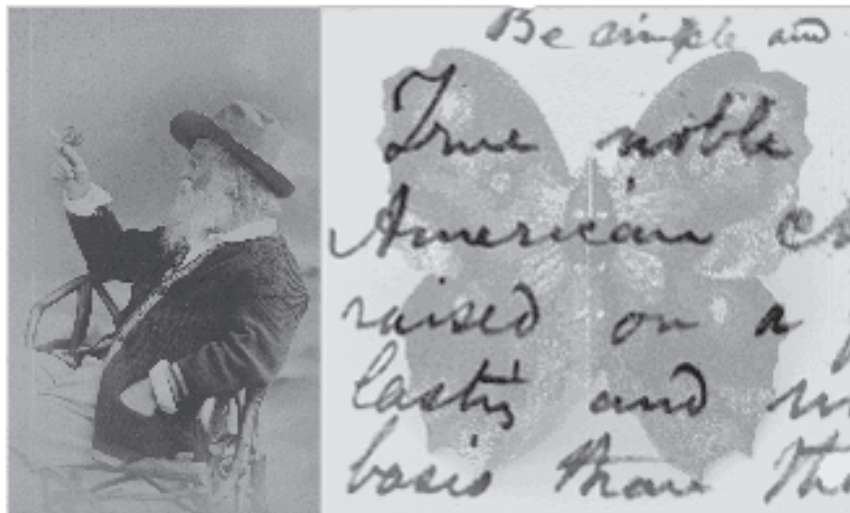 Be simple and
True noble
American ch
raised on a
lasting and m
basis than tha